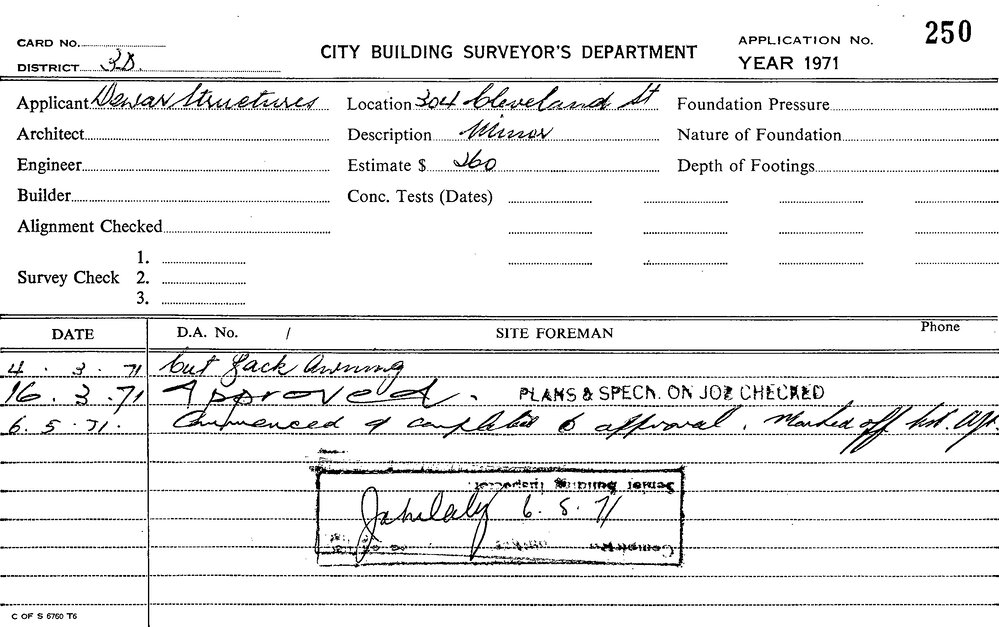 CARD No.
DISTRICT 3D.
CITY BUILDING SURVEYOR'S DEPARTMENT
APPLICATION No. 250
YEAR 1971
Applicant Dewar Structures Location 304 Cleveland St Foundation Pressure
Architect Description Minor Nature of Foundation
Engineer Estimate $ 260 Depth of Footings
Builder Conc. Tests (Dates)
Alignment Checked
1.
Survey Check 2.
3.
DATE D.A. No. / SITE FOREMAN Phone
4 . 3 . 71 Cut Back Awning
16 . 3 . 71 Approved . PLANS & SPECN. ON JOB CHECKED
6 . 5 . 71. Commenced & completed to approval . Marked off
Senior Building Inspector
6 . 5 . 71
C OF S 6760 T6